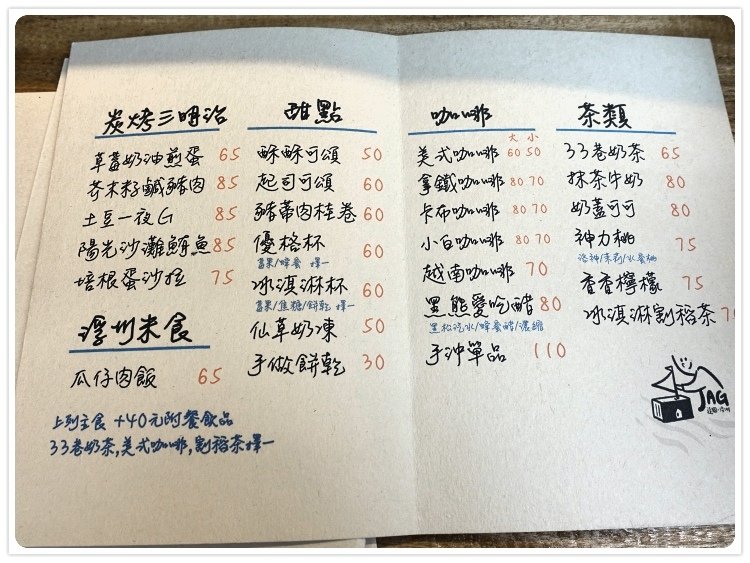 炭烤三明治
草莓奶油煎蛋 65
芥末籽鹹豬肉 85
土豆一夜G 85
陽光沙灘鮪魚 85
培根蛋沙拉 75
浮州米食
瓜仔肉飯 65
上列主食 +40元附餐飲品
33巷奶茶,美式咖啡,割稻茶擇一
甜點
酥酥可頌 50
起司可頌 60
豬蒂肉桂卷 60
優格杯 60
蜂蜜 擇一
冰淇淋杯 60
焦糖/餅乾 擇一
仙草奶凍 50
手做餅乾 30
咖啡
大 小
美式咖啡 60 50
拿鐵咖啡 80 70
卡布咖啡 80 70
小白咖啡 80 70
越南咖啡 70
黑熊愛吃醋 80
黑松汽水/蜂蜜醋/濃縮
手沖單品 110
茶類
33巷奶茶 65
抹茶牛奶 80
奶蓋可可 80
神力桃 75
洛神/茉莉/水蜜桃
香香檸檬 75
冰淇淋割稻茶 7
JAG